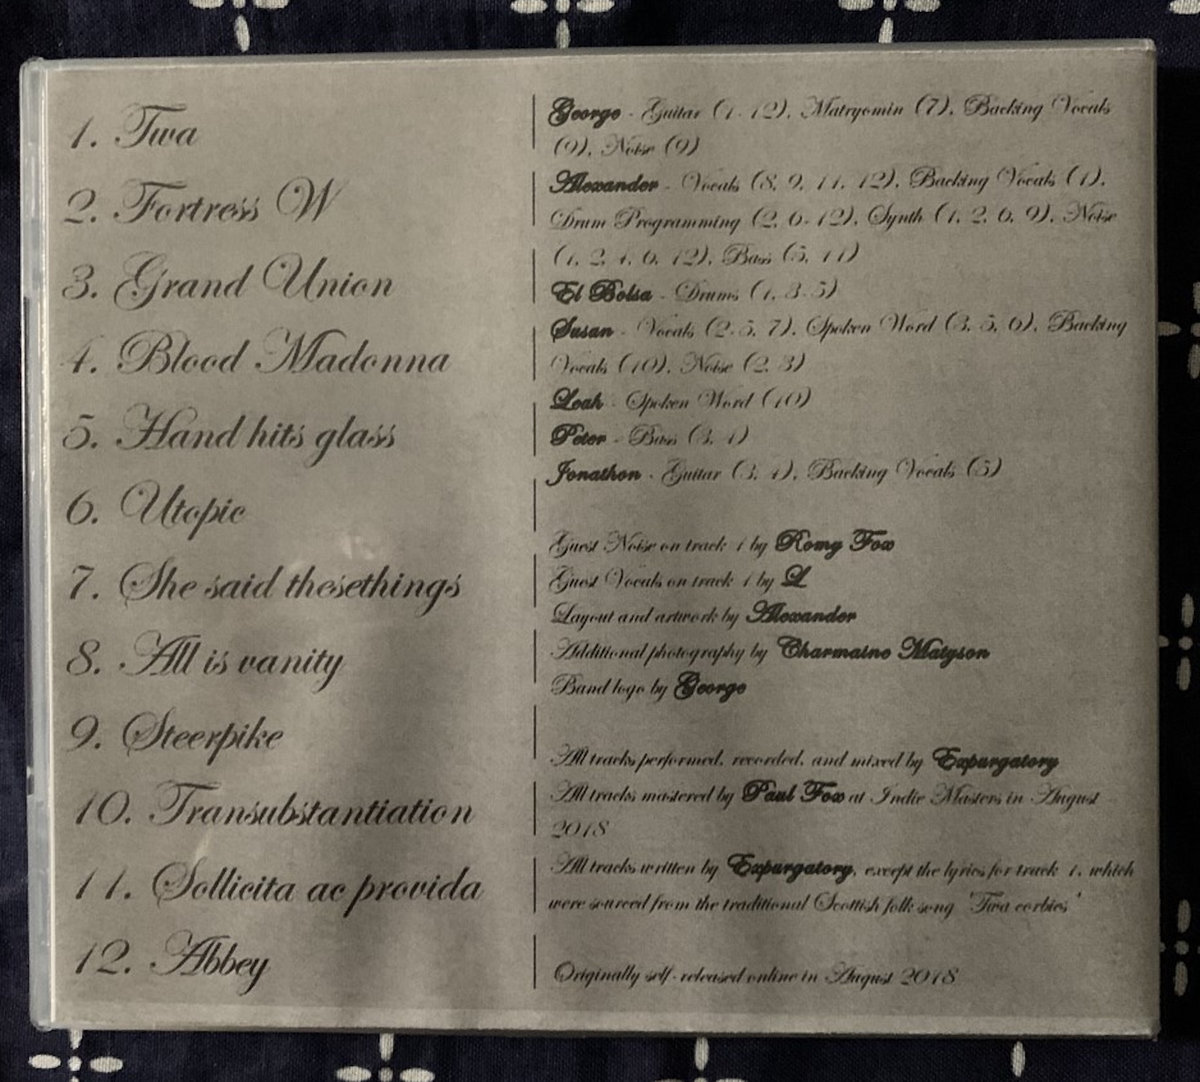 1. Twa
2. Fortress W
3. Grand Union
4. Blood Madonna
5. Hand hits glass
6. Utopic
7. She said thesethings
8. All is vanity
9. Steerpike
10. Transubstantiation
11. Sollicita ac provida
12. Abbey
George - Guitar (1-12), Matryomin (7), Backing Vocals
(9), Noise (9)
Alexander - Vocals (8, 9, 11, 12), Backing Vocals (1),
Drum Programming (2, 6-12), Synth (1, 2, 6, 9), Noise
(1, 2, 4, 6, 12), Bass (5, 11)
El Bolsa - Drums (1, 3-5)
Susan - Vocals (2-5, 7), Spoken Word (3, 5, 6), Backing
Vocals (10), Noise (2, 3)
Leah - Spoken Word (10)
Peter - Bass (3, 4)
Jonathon - Guitar (3, 4), Backing Vocals (5)
Guest Noise on track 1 by Romy Fox
Guest Vocals on track 1 by L
Layout and artwork by Alexander
Additional photography by Charmaine Matyson
Band logo by George
All tracks performed, recorded, and mixed by Expurgatory
All tracks mastered by Paul Fox at Indie Masters in August
2018
All tracks written by Expurgatory, except the lyrics for track 1, which
were sourced from the traditional Scottish folk song 'Twa corbies'
Originally self-released online in August 2018